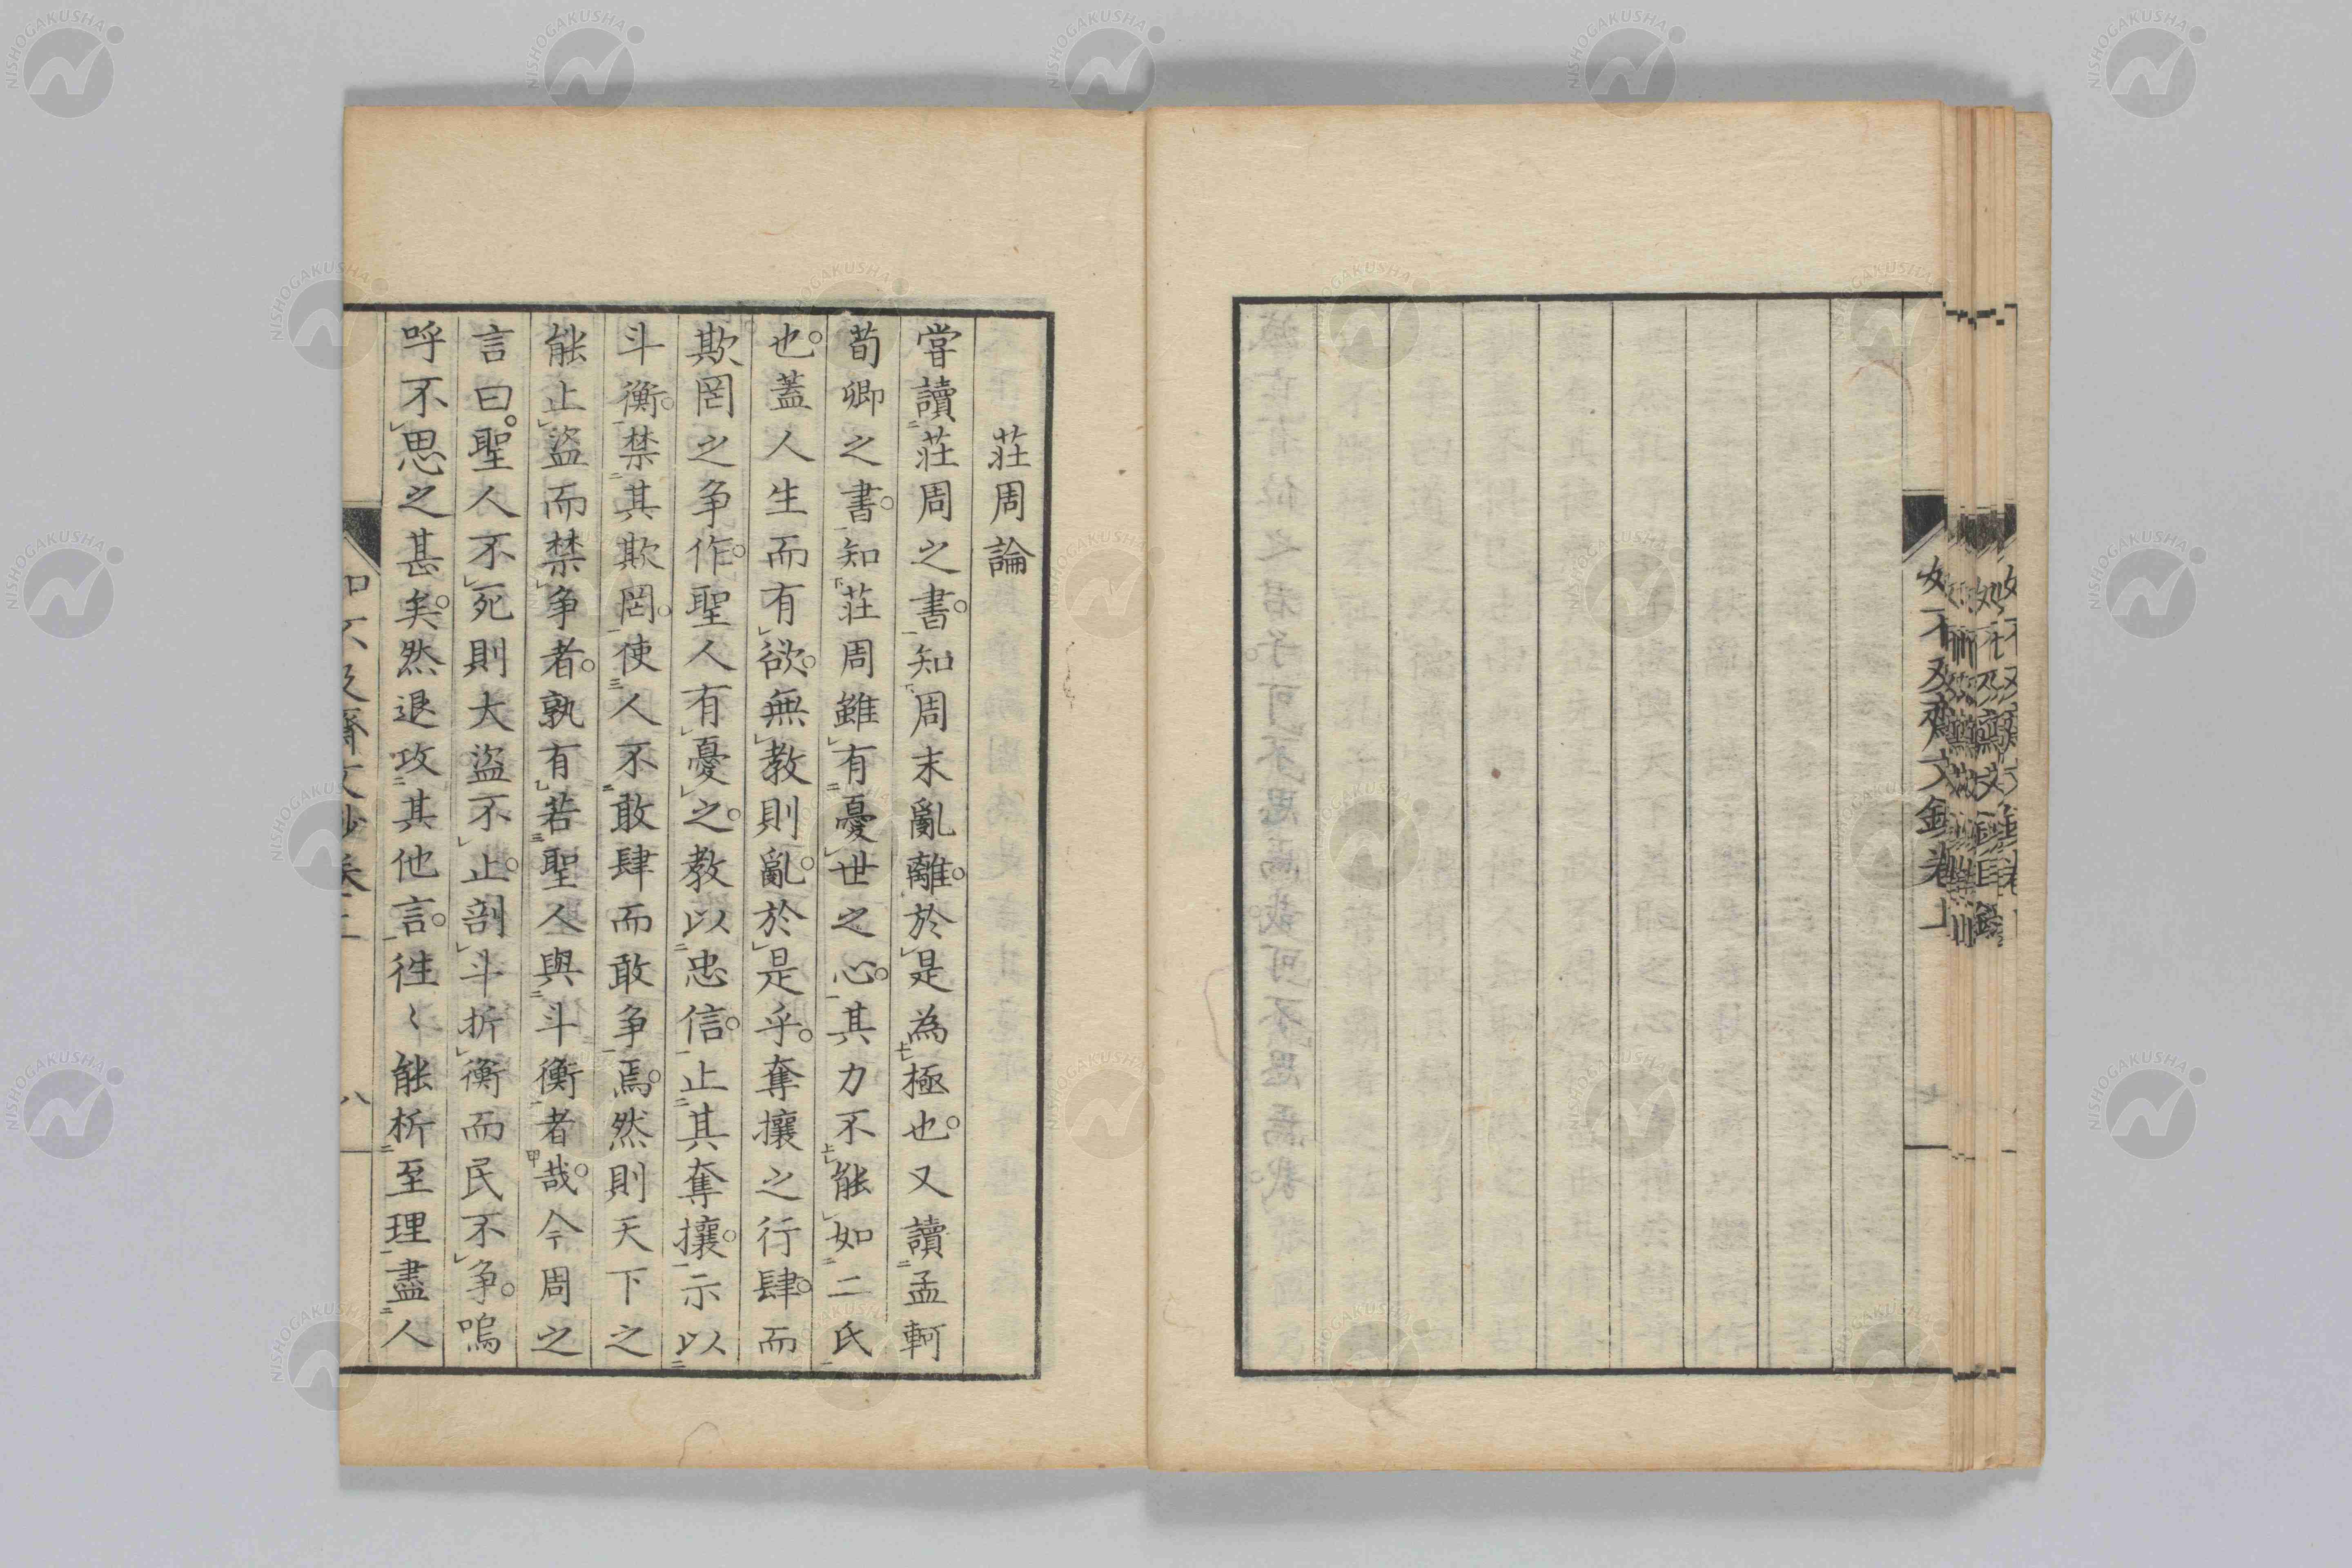 如不及齋文鈔卷上
七
莊周論
嘗讀莊周之書。知周末亂離。於是為極也。又讀孟軻
荀卿之書。知莊周雖有憂世之心。其力不能如二氏
也。蓋人生而有欲。無教則亂。於是乎。奪攘之行肆。而
欺罔之争作。聖人有憂之。教以忠信。止其奪攘。示以
斗衡。禁其欺罔。使人不敢肆而敢争焉。然則天下之
能止盗而禁争者。孰有若聖人與斗衡者哉。今周之
言曰。聖人不死則大盗不止。剖斗折衡而民不争。嗚
呼不思之甚矣。然退攻其他言。徃〻能析至理盡人
如不及齋文鈔卷上
八
NISHOGAKUSHA